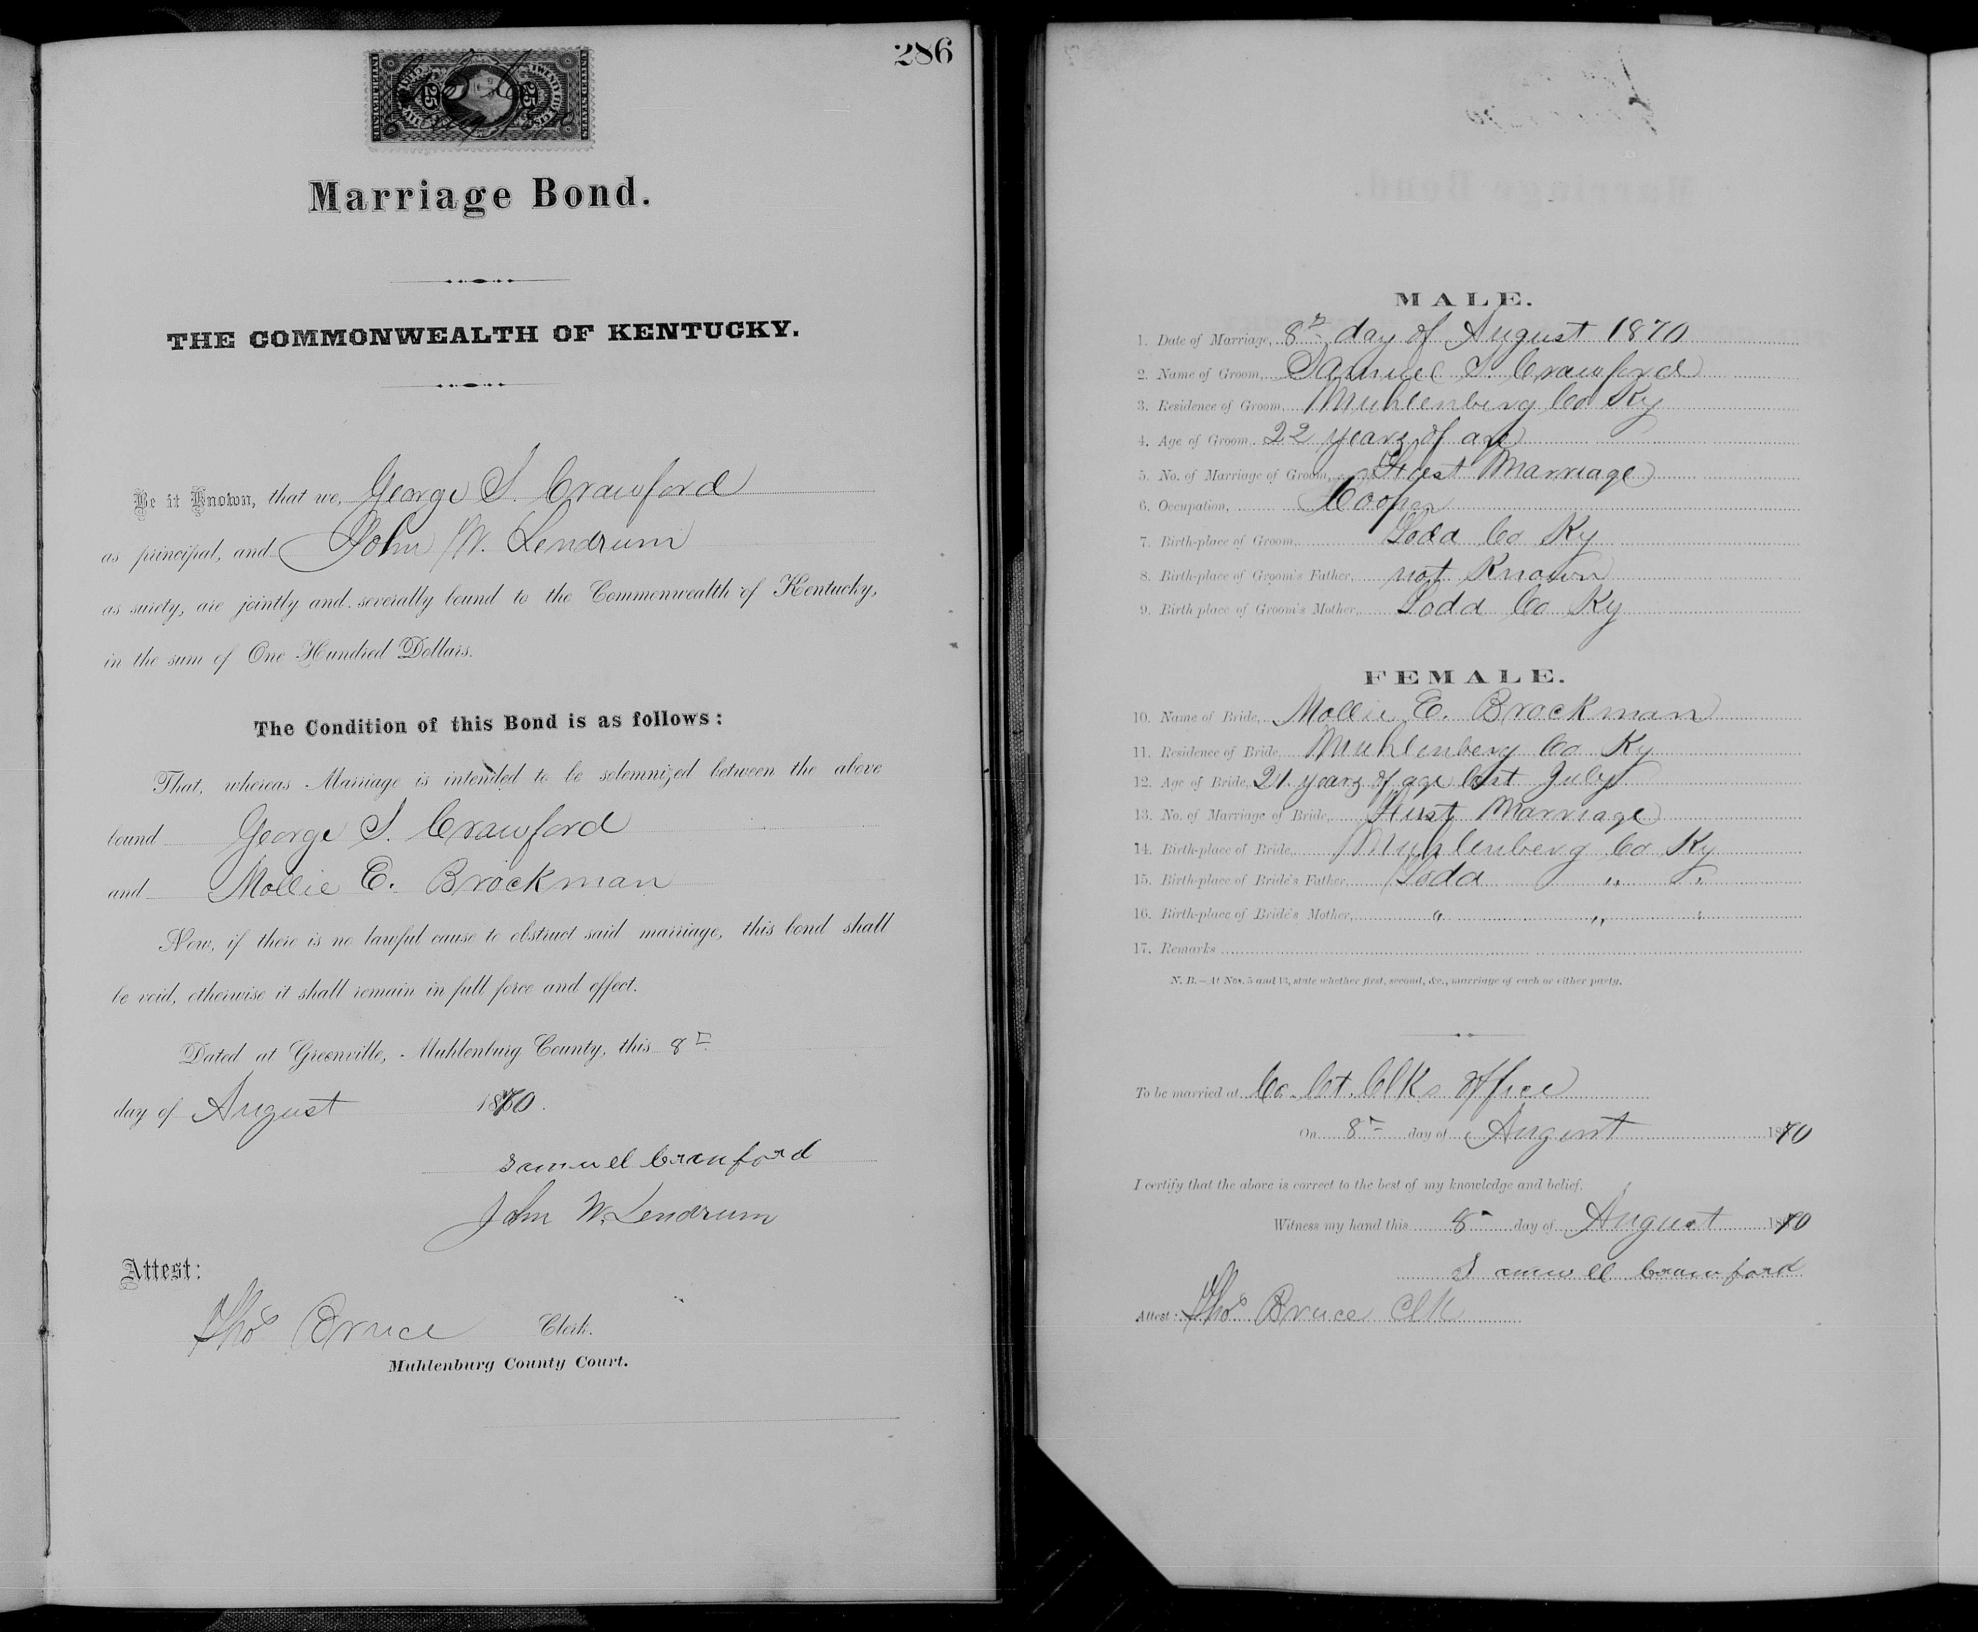 286
Marriage Bond.
THE COMMONWEALTH OF KENTUCKY.
Be it Known, that we, George S. Crawford
as principal, and John W. Lendrum
as surety, are jointly and severally bound to the Commonwealth of Kentucky,
in the sum of One Hundred Dollars.
The Condition of this Bond is as follows:
That, whereas Marriage is intended to be solemnized between the above
bound George S. Crawford
and Mollie E. Brockman
Now, if there is no lawful cause to obstruct said marriage, this bond shall
be void, otherwise it shall remain in full force and effect.
Dated at Greenville, Muhlenburg County, this 8th
day of August 1870.
Samuell Crauford
John W. Lendrum
Attest:
Thos Bruce Clerk.
Muhlenburg County Court.
MALE.
1. Date of Marriage, 8th day of August 1870
2. Name of Groom, Samuel S. Crawford
3. Residence of Groom, Muhlenberg Co Ky
4. Age of Groom, 22 years of age
5. No. of Marriage of Groom, First Marriage
6. Occupation, Cooper
7. Birth-place of Groom, Todd Co Ky
8. Birth-place of Groom's Father, not Known
9. Birth-place of Groom's Mother, Todd Co Ky
FEMALE.
10. Name of Bride, Mollie E. Brockman
11. Residence of Bride, Muhlenberg Co Ky
12. Age of Bride, 21 years of age last July
13. No. of Marriage of Bride, First Marriage
14. Birth-place of Bride, Muhlenberg Co Ky
15. Birth-place of Bride's Father, Todd " "
16. Birth-place of Bride's Mother, " " "
17. Remarks
N. B.—At Nos. 5 and 13, state whether first, second, &c., marriage of each or either party.
To be married at Co. Ct. Clks office
On 8th day of August 1870
I certify that the above is correct to the best of my knowledge and belief.
Witness my hand this 8th day of August 1870
Samuell Crawford
Attest: Thos Bruce Clk